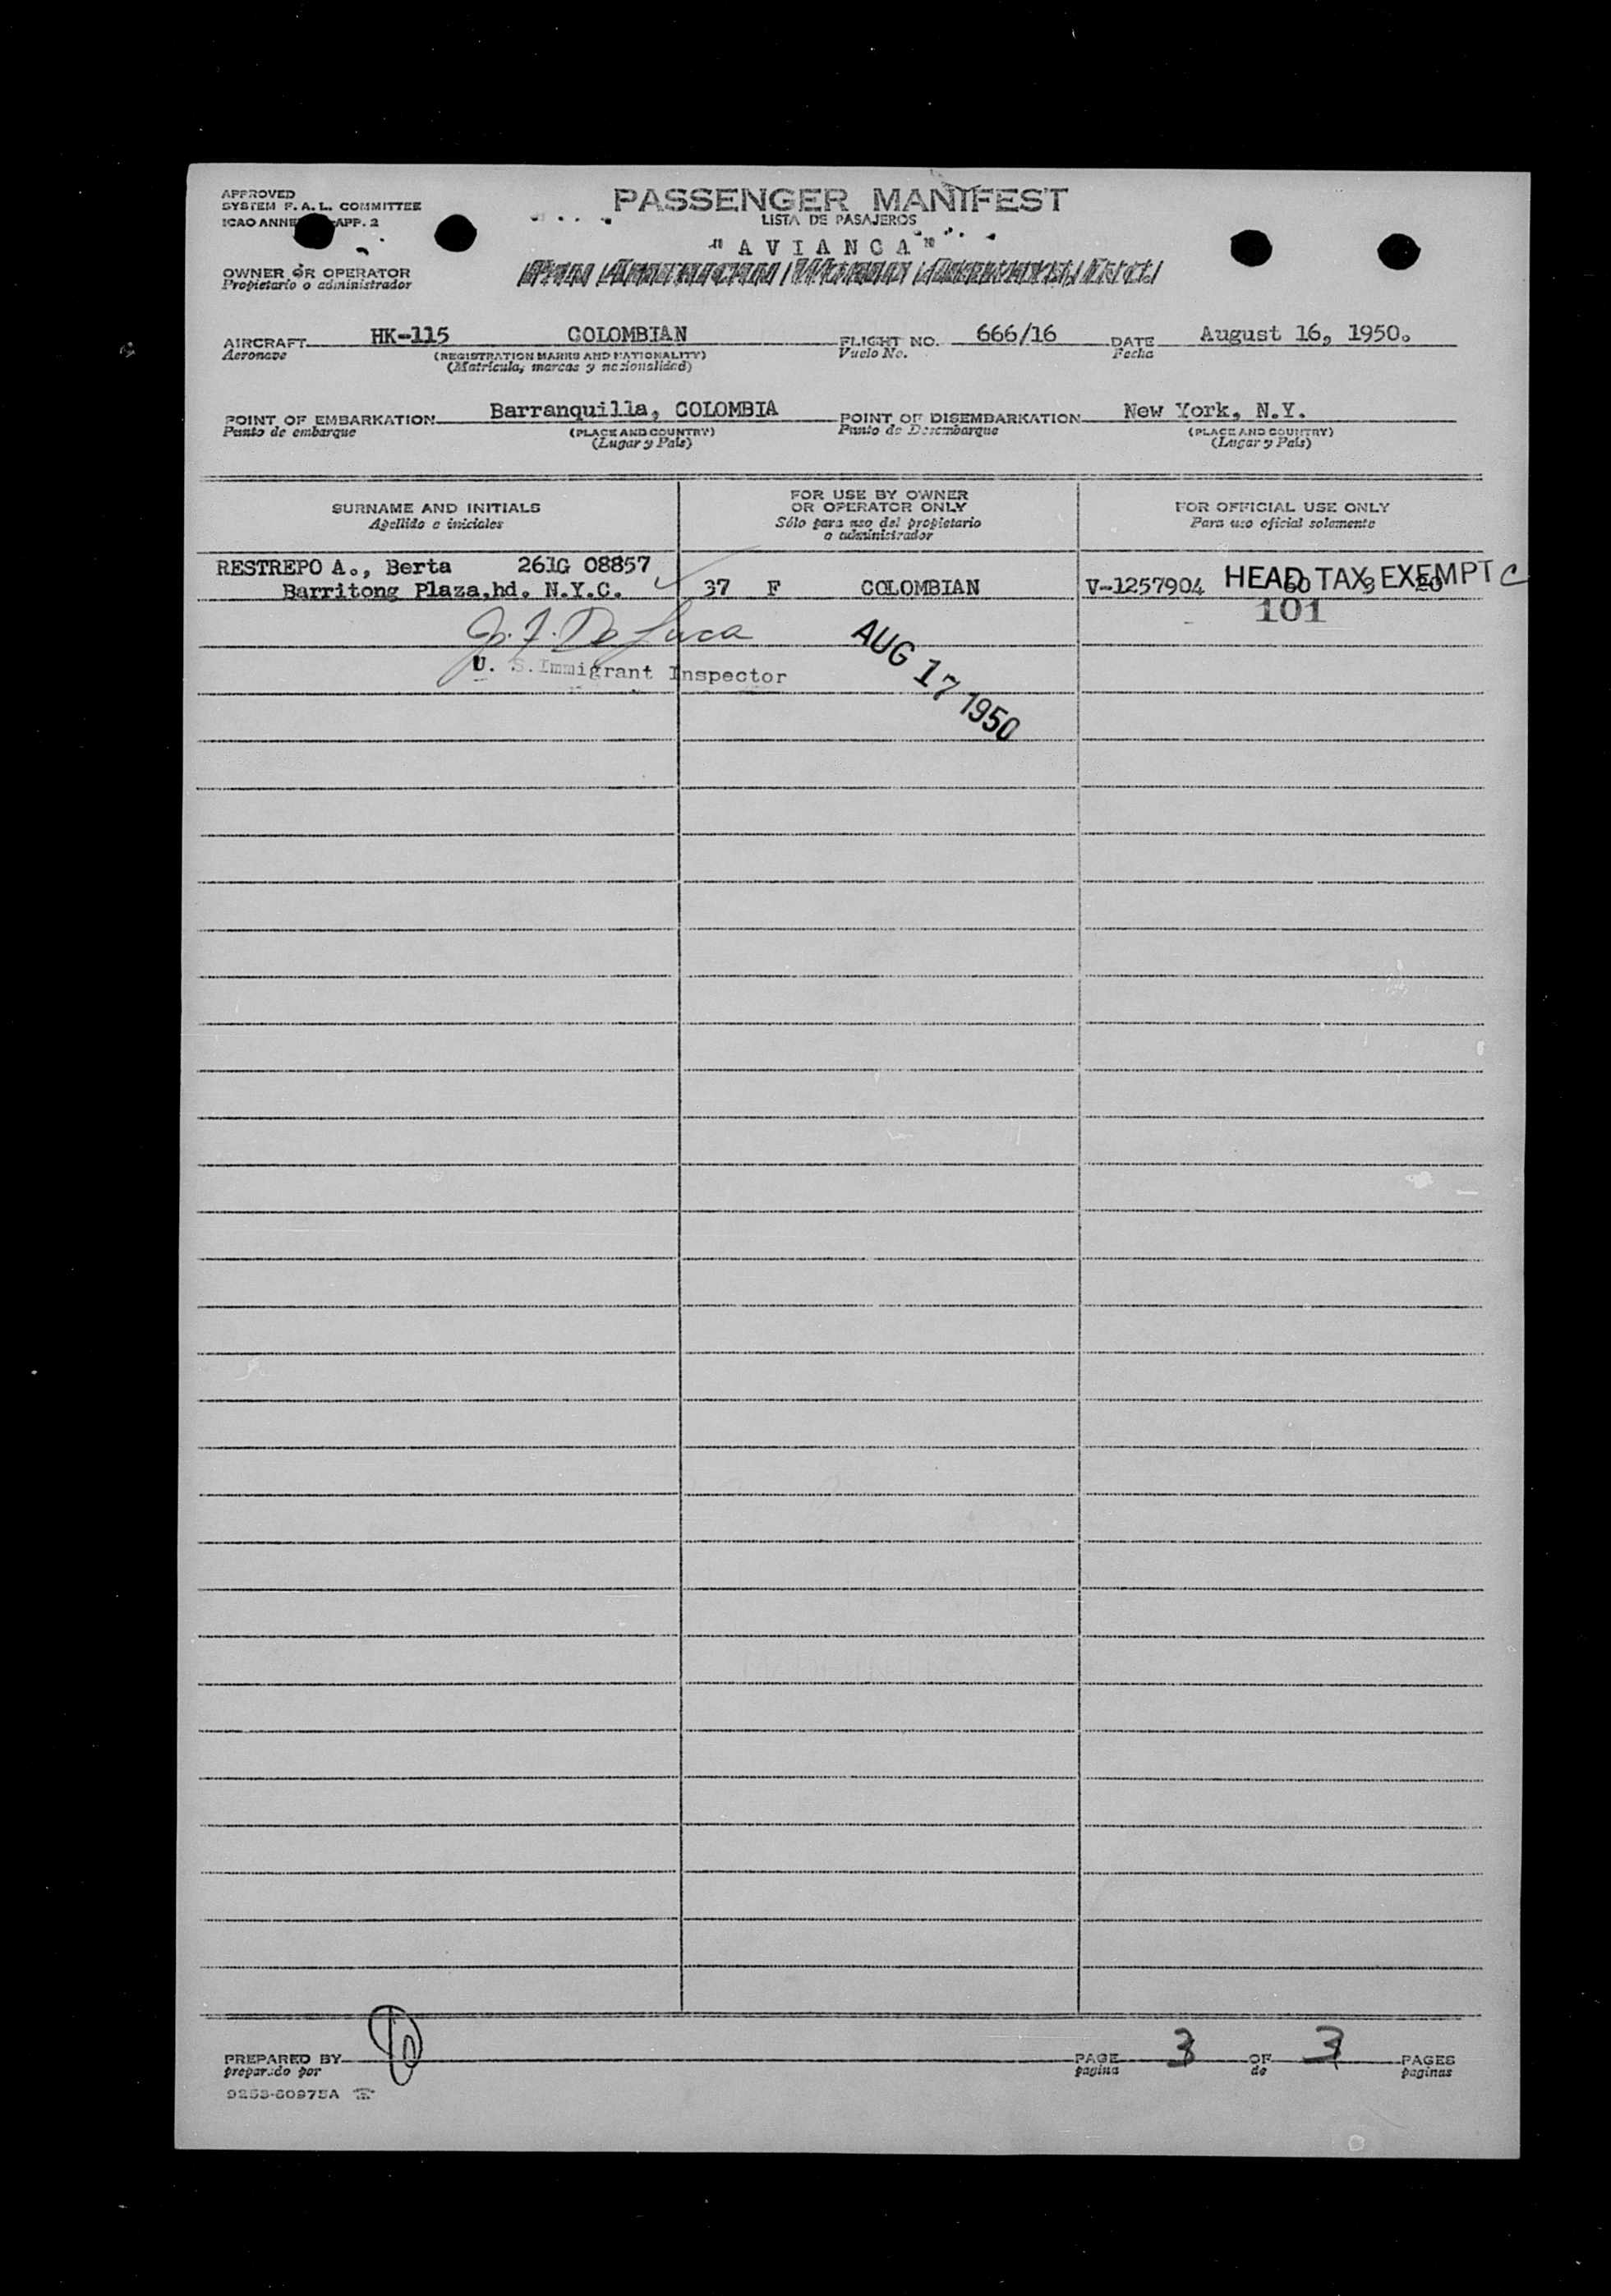 APPROVED
SYSTEM F. A. L. COMMITTEE
ICAO ANNE APP. 2
PASSENGER MANIFEST
LISTA DE PASAJEROS
"AVIANCA"
OWNER OR OPERATOR
Propietario o administrador
AIRCRAFT HK-115 COLOMBIAN FLIGHT NO. 666/16 DATE August 16, 1950.
Aeronave (REGISTRATION MARKS AND NATIONALITY) Vuelo No. Fecha
(Matrícula, marcas y nacionalidad)
POINT OF EMBARKATION Barranquilla, COLOMBIA POINT OF DISEMBARKATION New York, N.Y.
Punto de embarque (PLACE AND COUNTRY) Punto de Desembarque (PLACE AND COUNTRY)
(Lugar y País) (Lugar y País)
SURNAME AND INITIALS
Apellido e iniciales
FOR USE BY OWNER
OR OPERATOR ONLY
Sólo para uso del propietario
o administrador
FOR OFFICIAL USE ONLY
Para uso oficial solamente
RESTREPO A., Berta 261G 08857
Barritong Plaza,hd. N.Y.C. 37 F COLOMBIAN V-1257904 HEAD TAX EXEMPT C
60 3 20
101
U. S. Immigrant Inspector
AUG 17 1950
PREPARED BY PAGE 3 OF 3 PAGES
preparado por pagina de paginas
9253-60975A